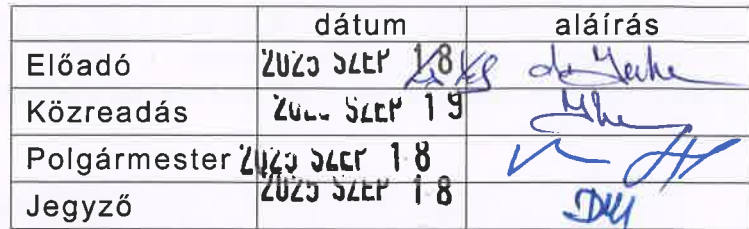 dátum aláírás
Előadó 2025 SZEP 18
Közreadás SZEP 19
Polgármester 2025 SZEP 18
Jegyző 2025 SZEP 18